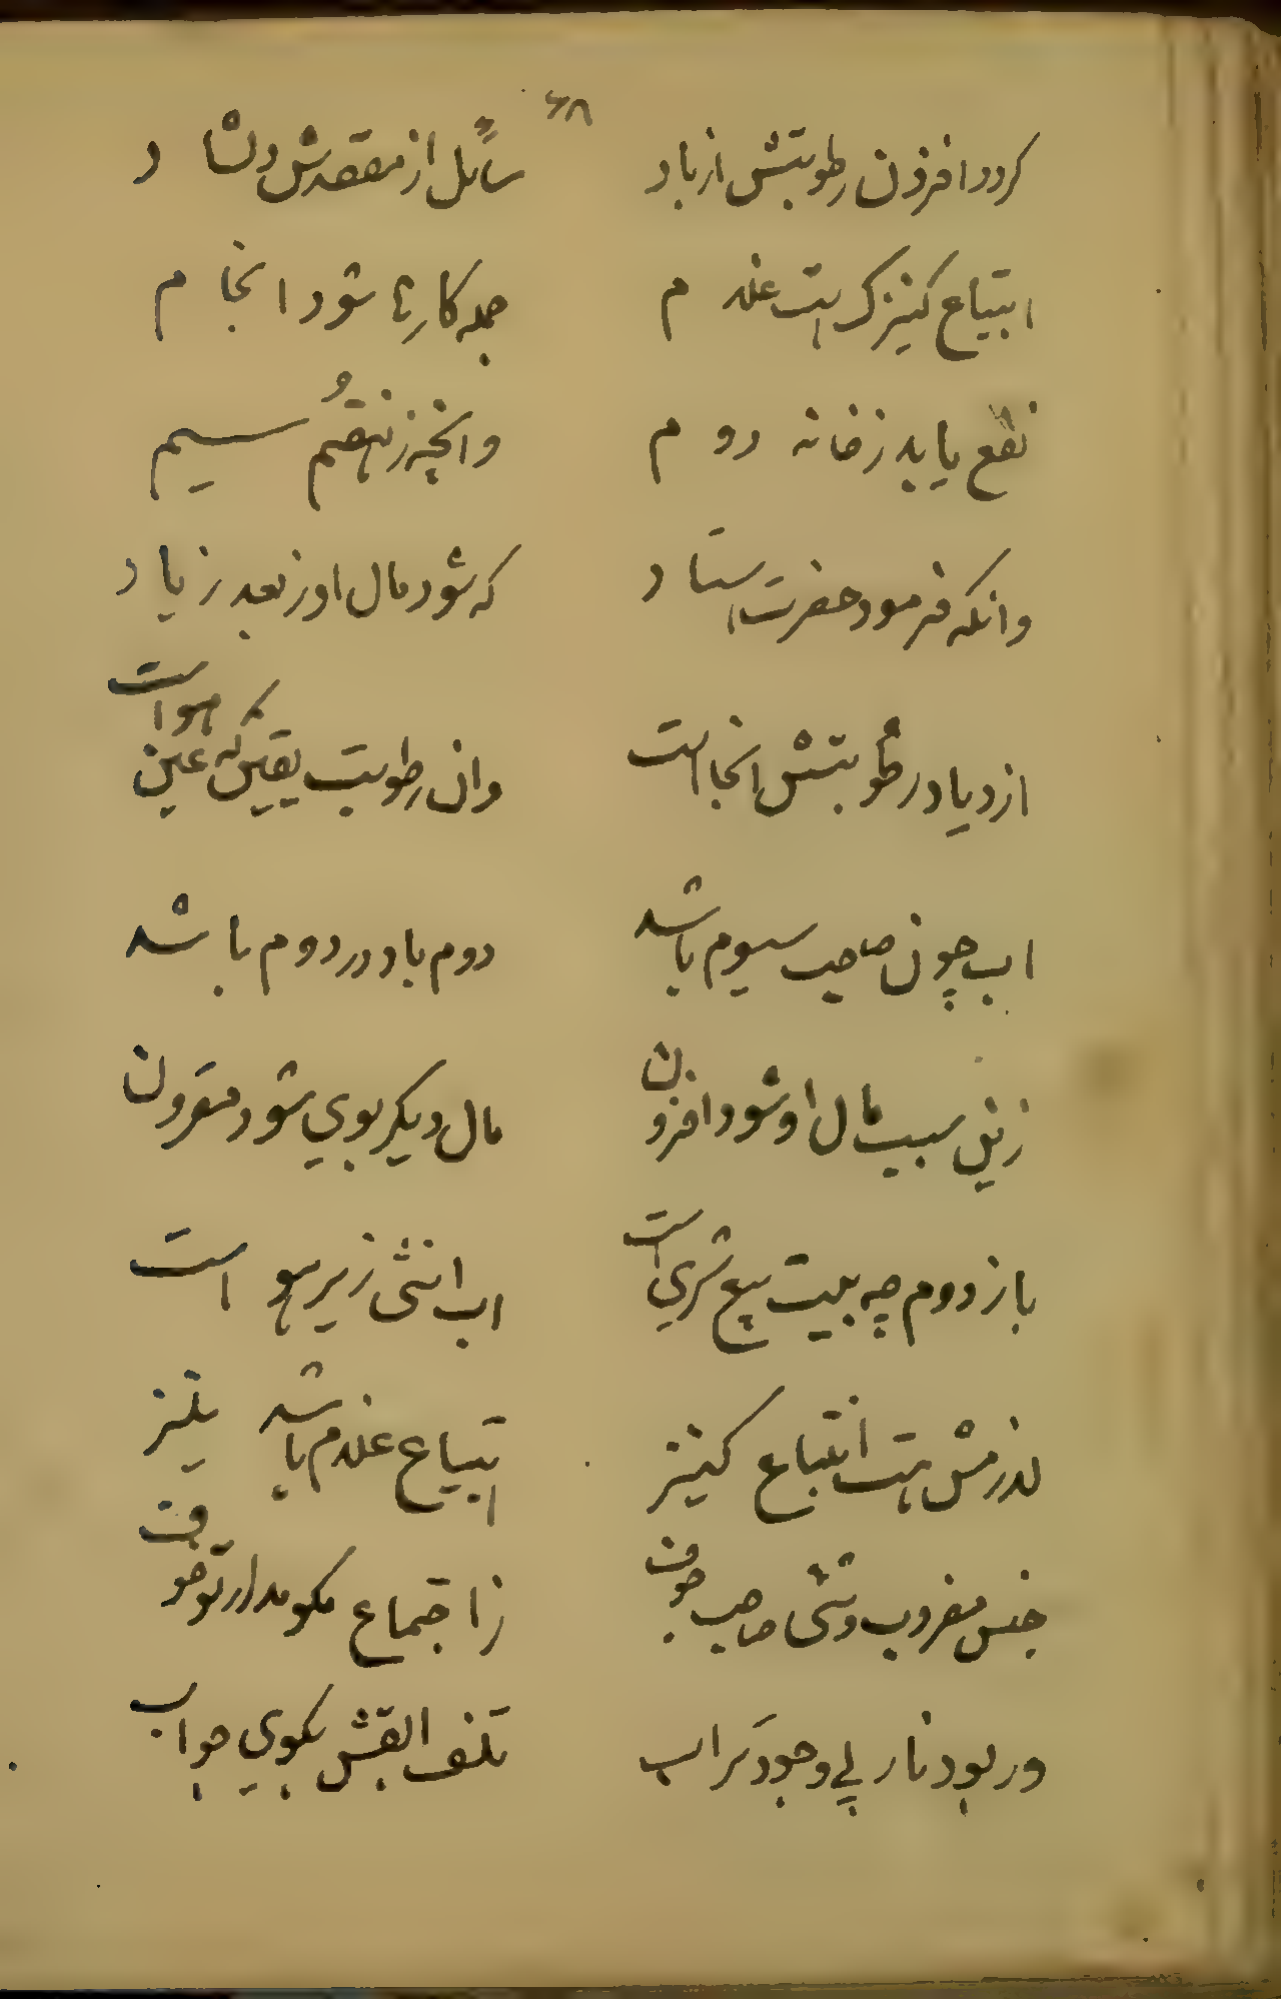 ۶۸
کردد افزون رطوبتش از باد سائل از مقصدش دلشاد
ابتیاع کنیزکست غلام جمله کارها شود انجام
نفع یابد ز خانه دوم وانچه ز نهم و سیم
وانکه فرمود حضرت استاد که شود مال او ز بعد زیاد
ازدیاد رطوبتش انجاست وان رطوبت یقین که عین هواست
اب چون صاحب سیوم باشد دوم باد در دوم باشد
زین سبب مال او شود افزون مال دیکر بوی شود مقرون
باز دوم چه بیت بیع شریست اب انثی زیر هواست
لازمش هست ابتیاع کنیز ابتیاع غلام باشد نیز
جنس مضروب وشی صاحب خوف ز اجتماع مکو مدار توقوف
ور بود نار بی وجود تراب نقش بکوی جواب